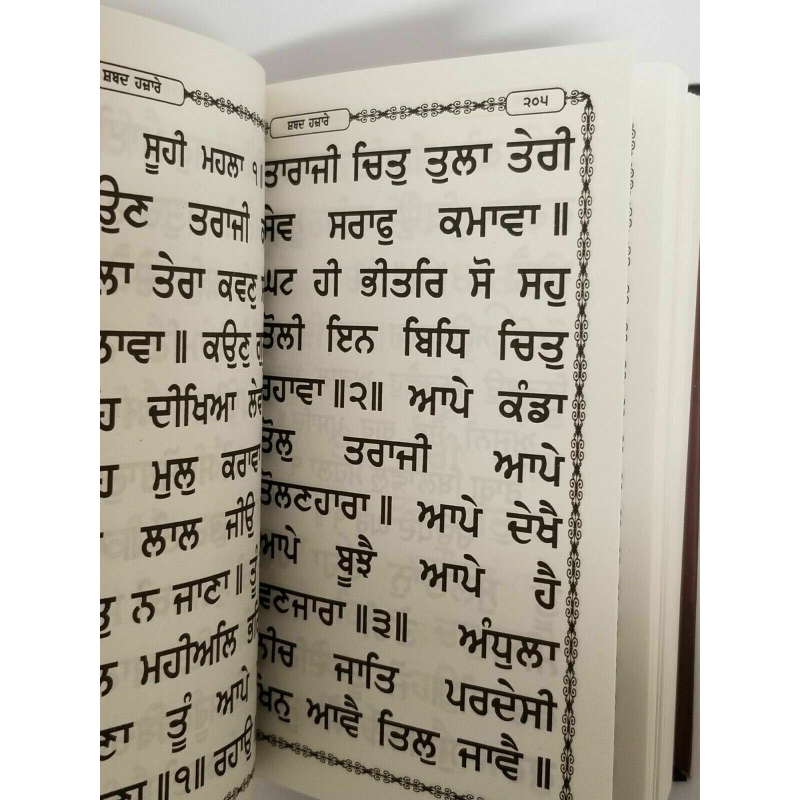 ਸ਼ਬਦ ਹਜ਼ਾਰੇ
ਸੂਹੀ ਮਹਲਾ ੧॥
ਤਰਾਜੀ
ਤੇਰਾ ਕਵਣੁ
॥ ਕਉਣੁ
ਦੀਖਿਆ
ਮੁਲੁ ਕਰਾਵਾ
ਲਾਲ ਜੀਉ
ਨ ਜਾਣਾ॥
ਮਹੀਅਲਿ
ਤੂੰ ਆਪੇ
॥੧॥ ਰਹਾਉ
ਸ਼ਬਦ ਹਜ਼ਾਰੇ
੨੦੫
ਤਾਰਾਜੀ ਚਿਤੁ ਤੁਲਾ ਤੇਰੀ
ਸੇਵ ਸਰਾਫੁ ਕਮਾਵਾ॥
ਘਟ ਹੀ ਭੀਤਰਿ ਸੋ ਸਹੁ
ਤੋਲੀ ਇਨ ਬਿਧਿ ਚਿਤੁ
ਰਹਾਵਾ॥੨॥ ਆਪੇ ਕੰਡਾ
ਤੋਲੁ ਤਰਾਜੀ ਆਪੇ
ਤੋਲਣਹਾਰਾ॥ ਆਪੇ ਦੇਖੈ
ਆਪੇ ਬੂਝੈ ਆਪੇ ਹੈ
ਵਣਜਾਰਾ॥੩॥ ਅੰਧੁਲਾ
ਨੀਚ ਜਾਤਿ ਪਰਦੇਸੀ
ਖਿਨੁ ਆਵੈ ਤਿਲੁ ਜਾਵੈ॥